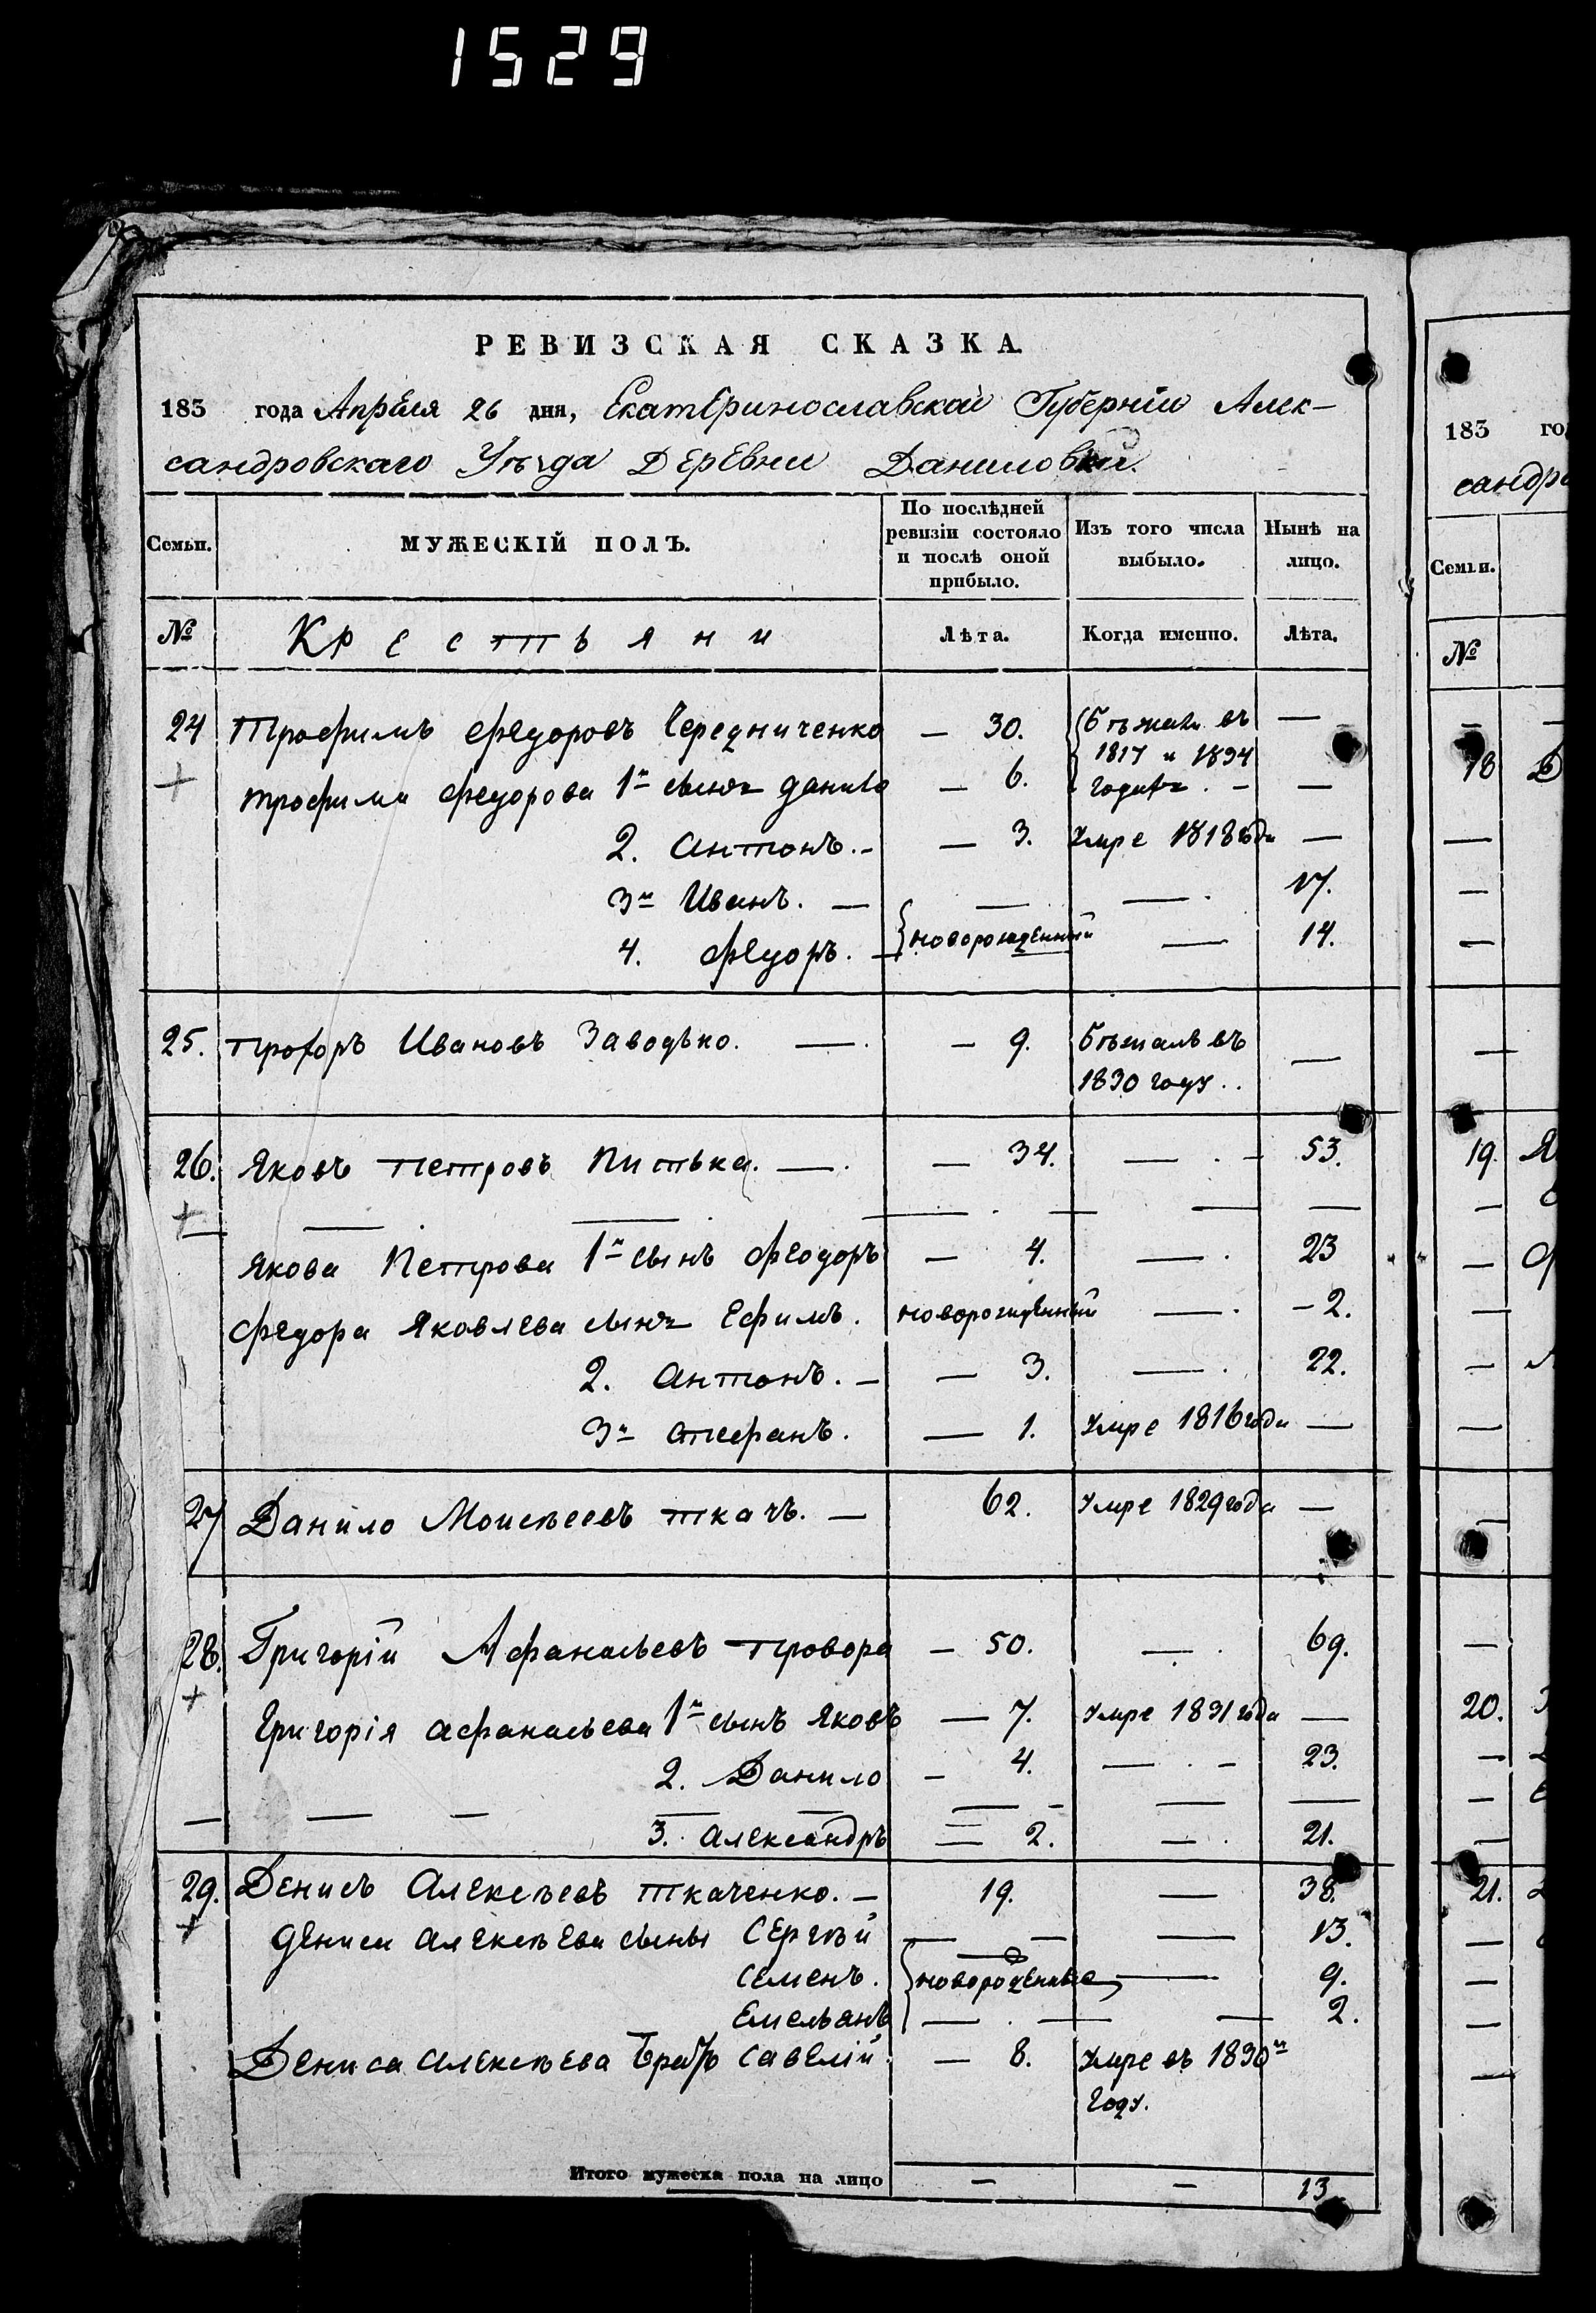 1529
РЕВИЗСКАЯ СКАЗКА.
183 года Апрѣля 26 дня, Екатеринославской Губерніи Алек-
сандровскаго Уѣзда Деревни Даниловки.
Семьи. МУЖЕСКІЙ ПОЛЪ. По послѣдней ревизіи состояло и послѣ оной прибыло. Изъ того числа выбыло. Нынѣ на лицо.
№ Крестьяни Лѣта. Когда именно. Лѣта.
24 Трофимъ Федоровъ Чередниченко — 30. Бѣжали въ —
Трофима Федорова 1й сынъ Данило — 6. 1817 и 1834 годахъ. —
2. Антонъ. — — 3. Умре 1818 года —
3й Иванъ. — — — 17.
4. Федоръ. — новорожденний — 14.
25. Прохоръ Ивановъ Заводько. — — 9. Бѣжалъ въ —
1830 году.
26. Яковъ Петровъ Питька. — — 34. — 53.
Якова Петрова 1й сынъ Феодоръ — 4. — 23
Федора Яковлева сынъ Ефимъ. новорожденний — 2.
2. Антонъ. — — 3. — 22.
3й Стефанъ. — 1. Умре 1816 года —
27 Данило Моисѣевъ Ткачъ. — 62. Умре 1829 года —
28. Григорій Афанасьевъ Провора — 50. — 69.
Григорія Афанасьева 1й сынъ Яковъ — 7. Умре 1831 года —
2. Данило — 4. — 23.
3. Александръ — 2. — 21.
29. Денисъ Алексѣевъ Ткаченко. — 19. — 38.
Дениса Алексѣева сыны Сергѣй — — 13.
Семенъ. новорожденные — 9.
Емельянъ — — 2.
Дениса Алексѣева братъ Савелій. — 8. Умре въ 1830м
году.
Итого мужеска пола на лицо — — 13
183 го
сандро
Семьи.
№
18
19.
20.
21.